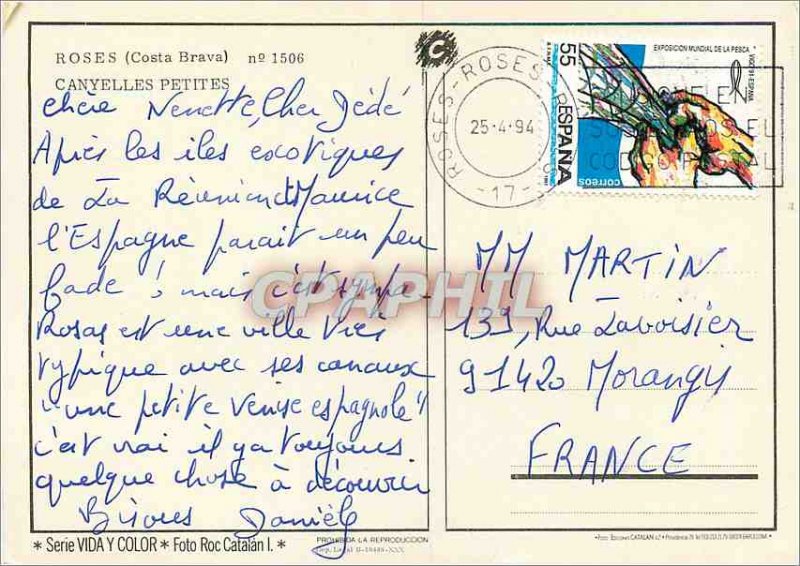 ROSES (Costa Brava) nº 1506
CANYELLES PETITES
Chère Nenette, Cher Dédé
Après les iles exotiques
de La Réunion et Maurice
l'Espagne parait un peu
fade ! mais c'est sympa.
Rosas est une ville très
typique avec ses canaux
"une petite Venise espagnole"
c'est vrai il y a toujours
quelque chose à découvrir
Bisous Danièle
* Serie VIDA Y COLOR * Foto Roc Catalán I. *
PROHIBIDA LA REPRODUCCION
C
ROSES - ROSES
25-4-94
-17-
55
ESPAÑA
correos
EXPOSICION MUNDIAL DE LA PESCA
VIGO'91-ESPAÑA
CODIGO POSTAL
MM MARTIN
139, Rue Lavoisier
91420 Morangis
FRANCE
CPAPHIL